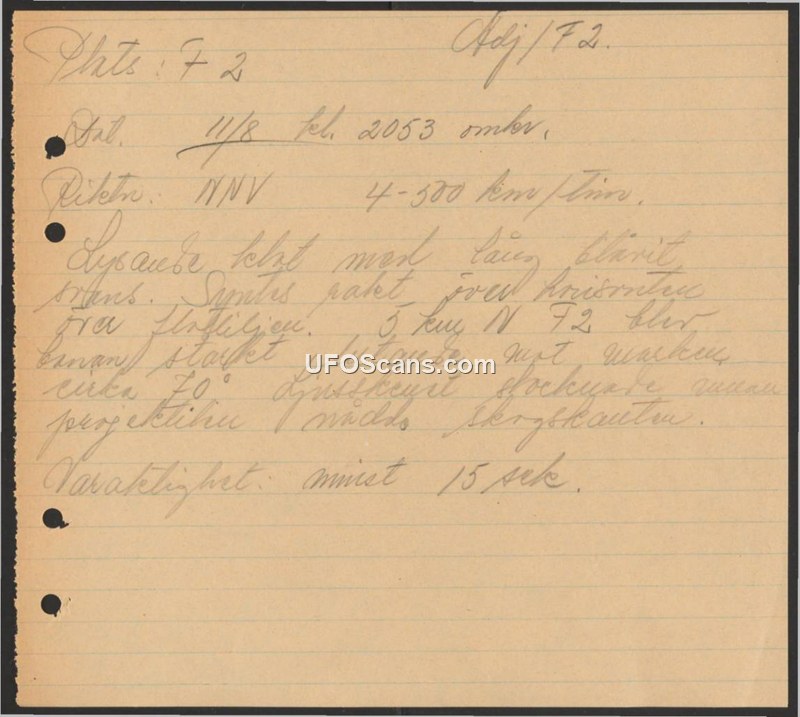 Adj/F2.
Plats: F 2
Dat. 11/8 kl. 2053 omkr.
Riktn: NNV 4-500 km/tim.
Lysande klot med lång blåvit
svans. Syntes rakt över horisonten
över flottiljen. 5 km N F2 blev
banan starkt mot marken
cirka 70° Ljusskenet slocknade innan
projektilen nådde skogskanten.
Varaktighet: minst 15 sek.
UFOScans.com